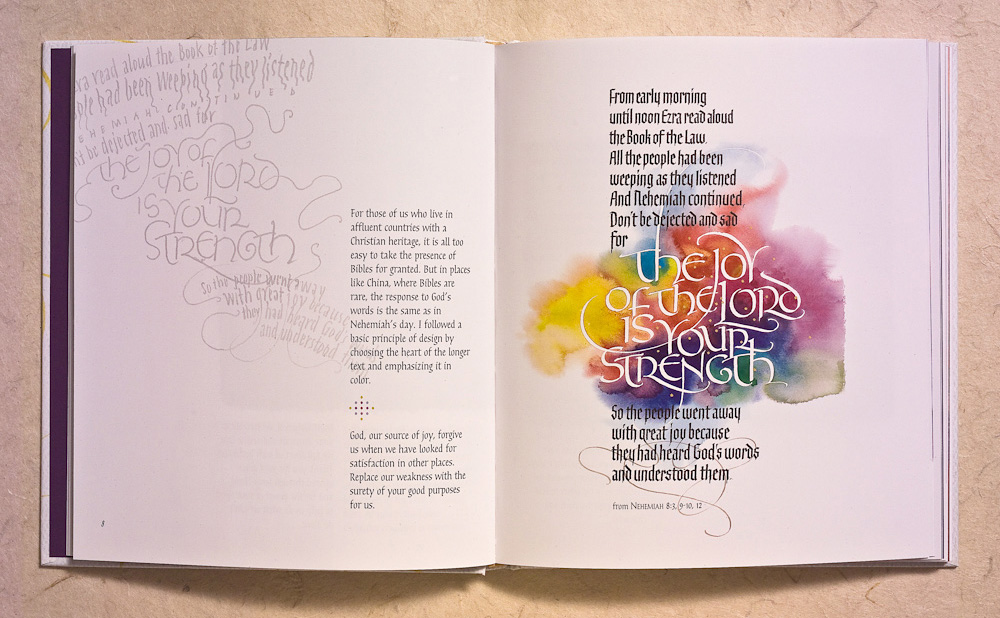 ra read aloud the Book of the Law
ple had been Weeping as they listened
EHEMIAH CONTINUED
't be dejected and sad for
the joy of
the LORD
IS YOUR
STRENGTH
So the people went away
with great joy because
they had heard God's
and understood
For those of us who live in
affluent countries with a
Christian heritage, it is all too
easy to take the presence of
Bibles for granted. But in places
like China, where Bibles are
rare, the response to God's
words is the same as in
Nehemiah's day. I followed a
basic principle of design by
choosing the heart of the longer
text and emphasizing it in
color.
God, our source of joy, forgive
us when we have looked for
satisfaction in other places.
Replace our weakness with the
surety of your good purposes
for us.
8
From early morning
until noon Ezra read aloud
the Book of the Law.
All the people had been
weeping as they listened
And Nehemiah continued,
Don't be dejected and sad
for
the JOY
OF the LORD
IS YOUR
STRENGTH
So the people went away
with great joy because
they had heard God's words
and understood them.
from NEHEMIAH 8:3, 9-10, 12